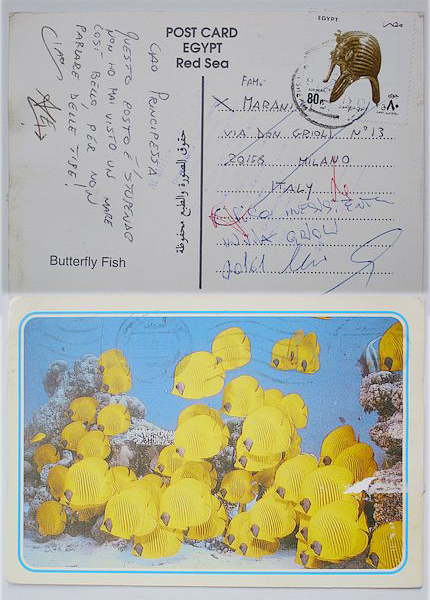 POST CARD
EGYPT
Red Sea
EGYPT
مصر
AIR MAIL
80P
٨٠
CIAO PRINCIPESSA
QUESTO POSTO È STUPENDO
NON HO MAI VISTO UN MARE
COSÌ BELLO, PER NON
PARLARE DELLE TUE!
CIAO
FAM.
X MARANI
VIA DON GRIOLI N°13
20156 MILANO
ITALY
GRIOLI
حقوق الصورة والطبع محفوظة
Butterfly Fish